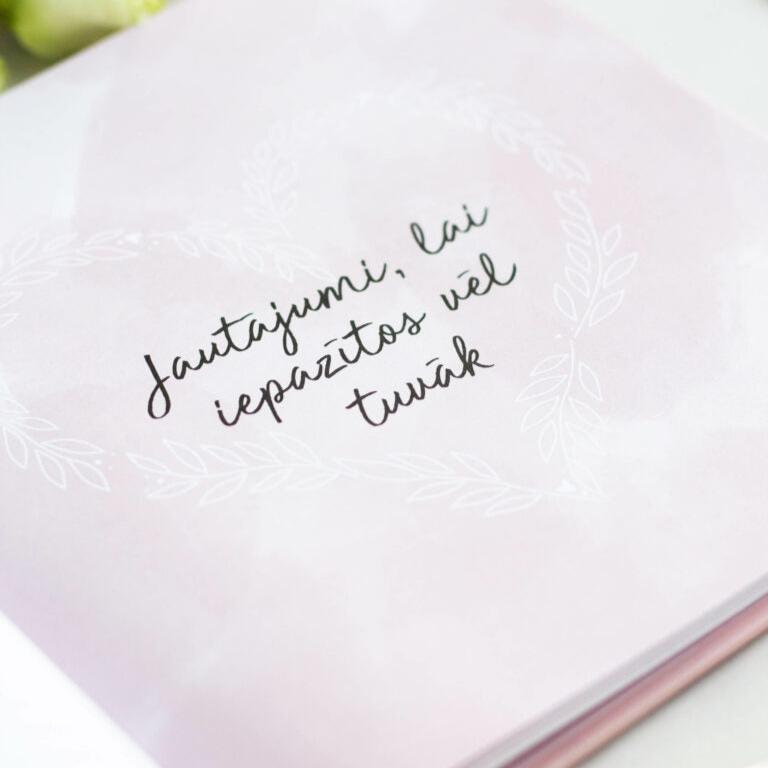 Jautājumi, lai
iepazītos vēl
tuvāk